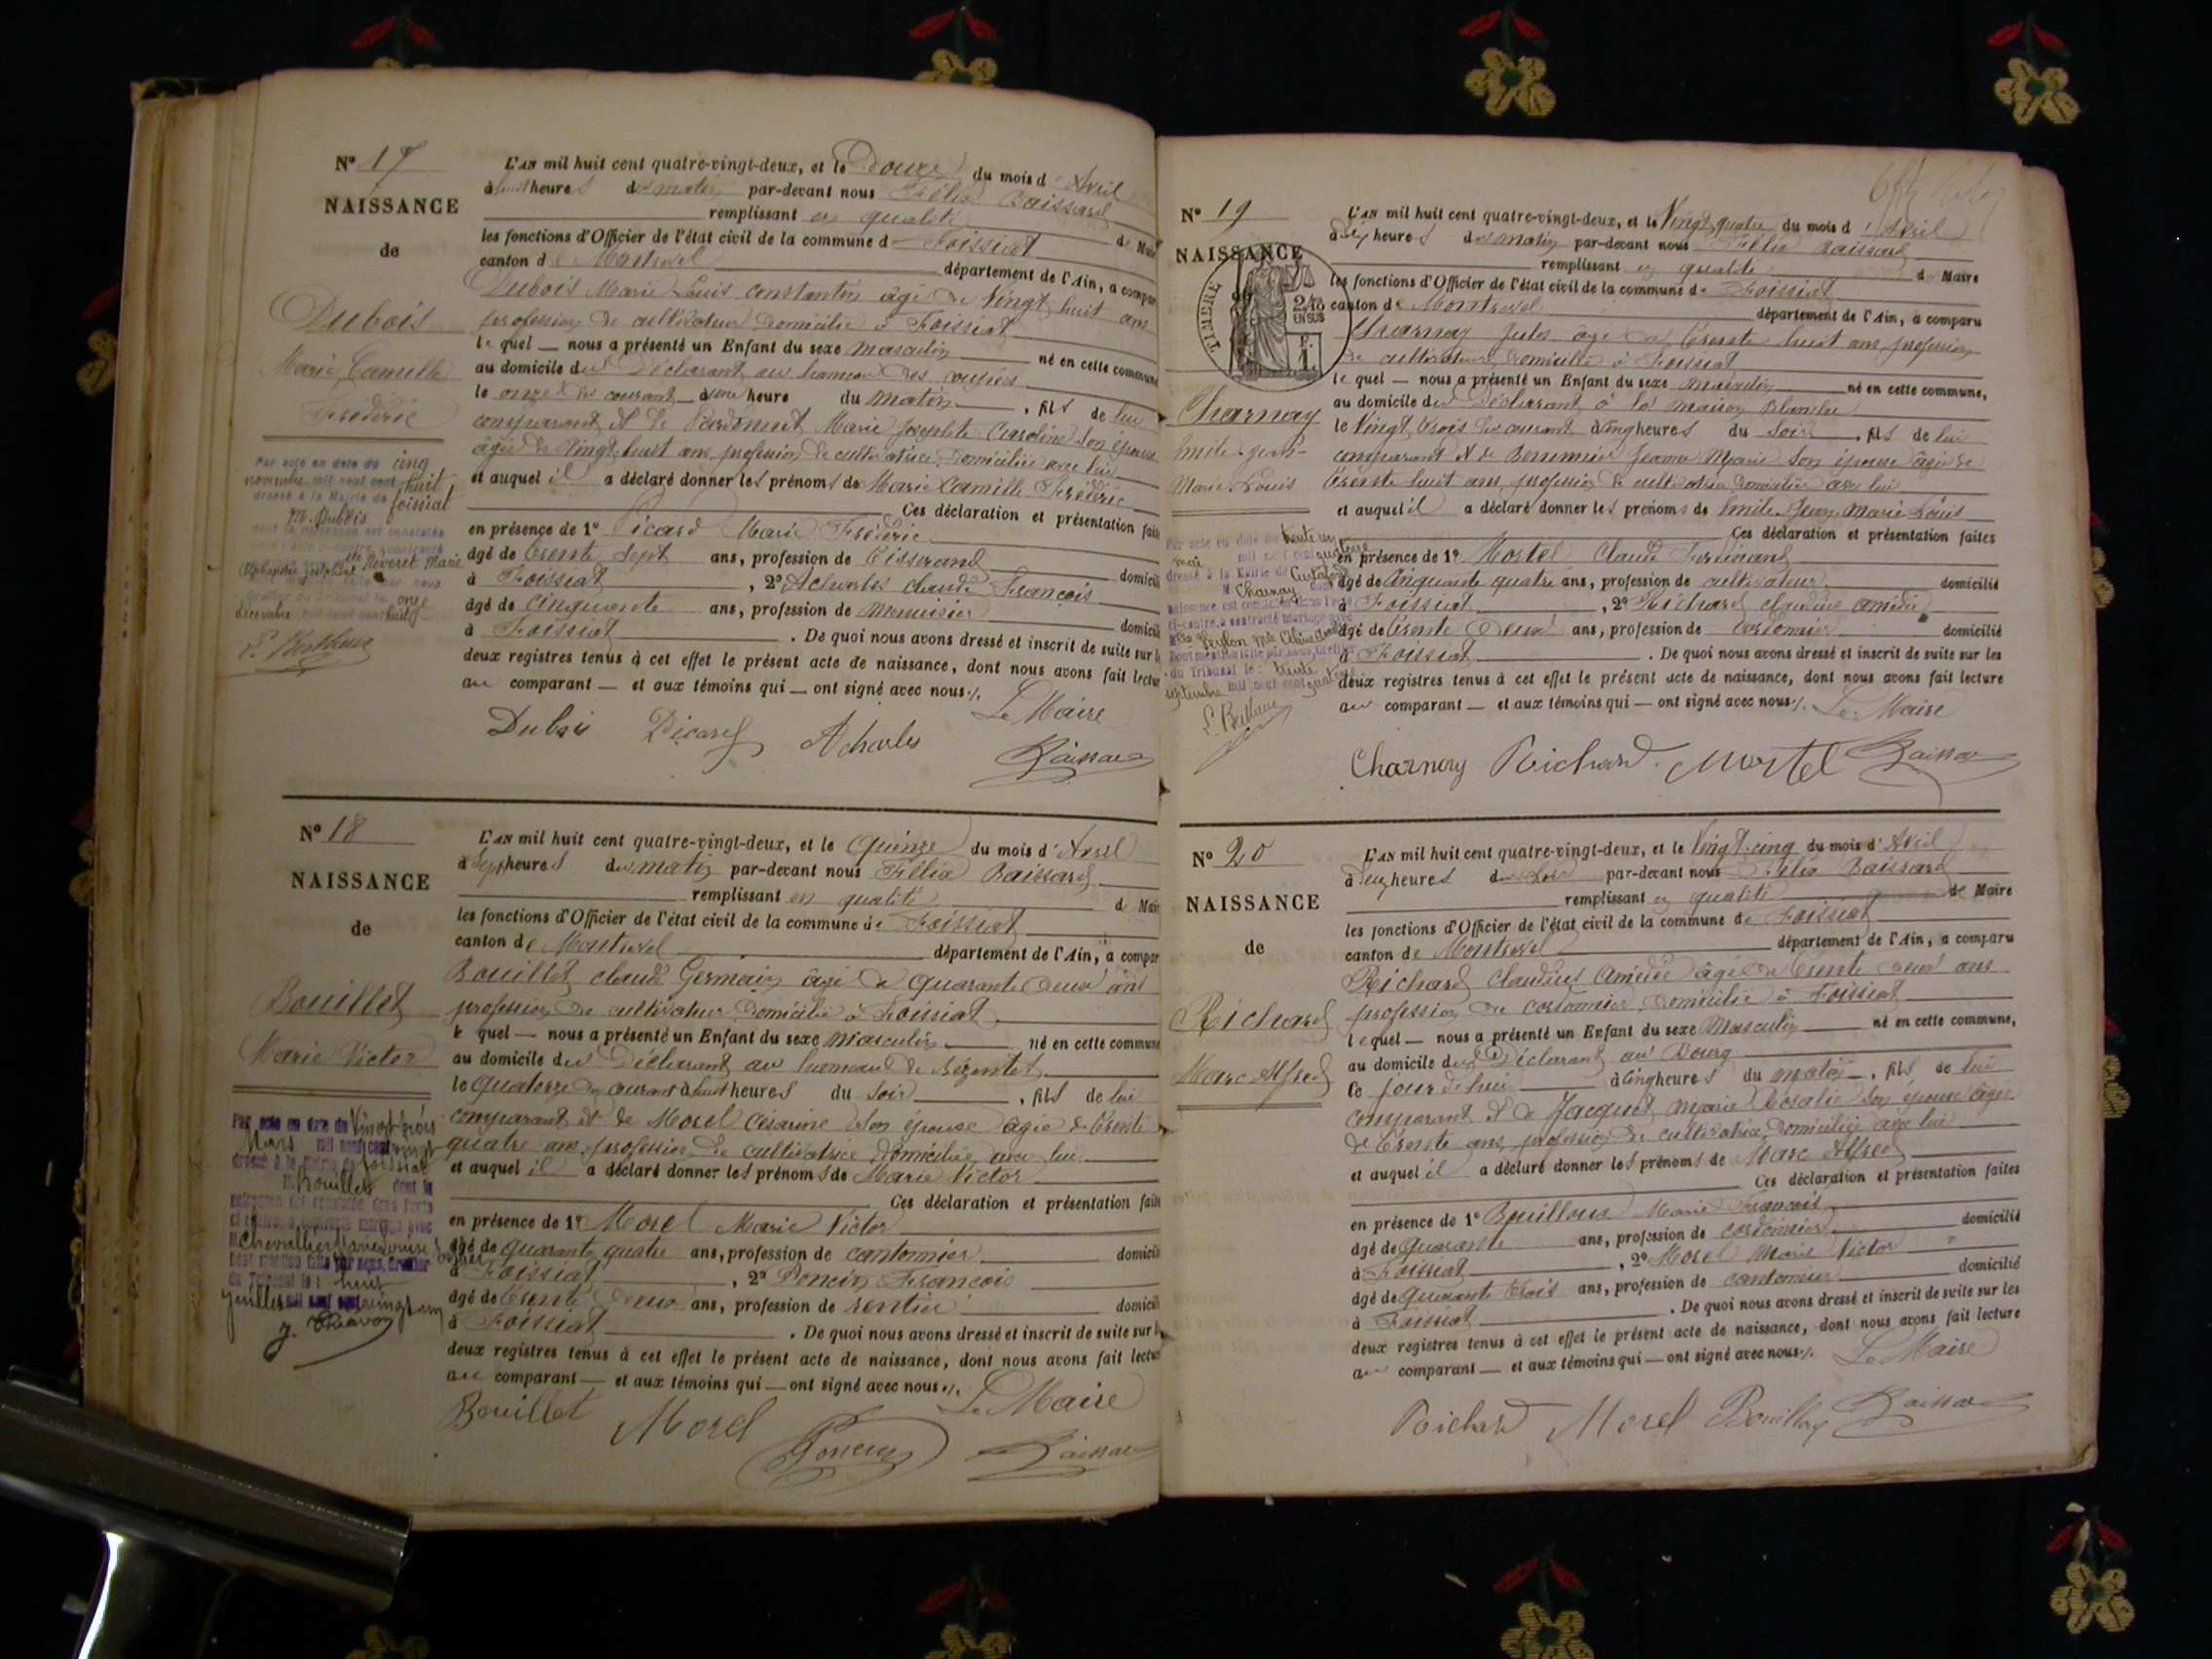 Nº 17
NAISSANCE
de
Dubois
Marie Camille
Frédéric
L'AN mil huit cent quatre-vingt-deux, et le Douze du mois d'Avril
à huit heures du matin par-devant nous Félix Baissard
remplissant en qualité de Maire
les fonctions d'Officier de l'état civil de la commune de Foissiat
canton de Montrevel département de l'Ain, a compar
Dubois Marie Louis constantin âgé de Vingt huit ans
profession de cultivateur, domicilié à Foissiat
le quel — nous a présenté un Enfant du sexe masculin né en cette commune
au domicile du Déclarant au hameau des
le onze du courant à une heure du matin, fils de lui
comparant et de Perdonnet Marie Josephte Caroline son épouse
âgée de Vingt huit ans, profession de cultivatrice, domiciliée avec lui
et auquel il a déclaré donner les prénoms de Marie Camille Frédéric
Ces déclaration et présentation fait
en présence de 1º Picard Marie Frédéric
âgé de trente sept ans, profession de Tisserand domicil
à Foissiat, 2º Acharles claude François
âgé de cinquante ans, profession de menuisier domicil
à Foissiat. De quoi nous avons dressé et inscrit de suite sur l
deux registres tenus à cet effet le présent acte de naissance, dont nous avons fait lectur
au comparant — et aux témoins qui — ont signé avec nous./. Le Maire
Dubois Picard Acharles Baissard
Par acte en date du cinq
novembre mil neuf cent huit
dressé à la Mairie de foissiat
M. Dubois
Neveret Marie
onze
décembre mil neuf cent huit
Nº 18
NAISSANCE
de
Bouillet
Marie Victor
L'AN mil huit cent quatre-vingt-deux, et le Quinze du mois d'Avril
à Sept heures du matin par-devant nous Félix Baissard
remplissant en qualité de Mair
les fonctions d'Officier de l'état civil de la commune de Foissiat
canton de Montrevel département de l'Ain, a compar
Bouillet claude Germain âgé de quarante deux ans
profession de cultivateur, domicilié à Foissiat
le quel — nous a présenté un Enfant du sexe masculin né en cette commune
au domicile du Déclarant au hameau de
le quatorze du courant à huit heures du soir, fils de lui
comparant et de Morel césarine son épouse âgée de trente
quatre ans, profession de cultivatrice domiciliée avec lui
et auquel il a déclaré donner les prénoms de Marie Victor
Ces déclaration et présentation fait
en présence de 1º Morel Marie Victor
âgé de quarante quatre ans, profession de cantonnier domicili
à Foissiat, 2º Poncin François
âgé de trente deux ans, profession de rentier domicili
à Foissiat. De quoi nous avons dressé et inscrit de suite sur l
deux registres tenus à cet effet le présent acte de naissance, dont nous avons fait lectur
au comparant — et aux témoins qui — ont signé avec nous./. Le Maire
Bouillet Morel Poncin Baissard
Par acte en date du Vingt trois
Mars mil neuf cent vingt
dressé à la mairie de foissiat
M Bouillet dont la
naissance est constatée dans l'acte
ci-contre, a contracté mariage avec
Chevallier Marie Louise
Dont mention faite par nous, Greffier
du Tribunal le huit
juillet mil neuf cent vingt
Nº 19
NAISSANCE
de
TIMBRE
2/10
EN SUS
Charnay
Emile Jean
Marie Louis
L'AN mil huit cent quatre-vingt-deux, et le Vingt quatre du mois d'Avril
à dix heures du matin par-devant nous Félix Baissard
remplissant en qualité de Maire
les fonctions d'Officier de l'état civil de la commune de Foissiat
canton de Montrevel département de l'Ain, a comparu
Charnay Jules âgé de trente huit ans, profession
de cultivateur, domicilié à Foissiat
le quel — nous a présenté un Enfant du sexe masculin né en cette commune,
au domicile du Déclarant à la maison Blanche
le Vingt trois du courant à cinq heures du soir, fils de lui
comparant et de Jeanne Marie son épouse âgée de
trente huit ans, profession de cultivatrice domiciliée avec lui
et auquel il a déclaré donner les prénoms de Emile Jean Marie Louis
Ces déclaration et présentation faites
en présence de 1º Mortel Claude Ferdinand
âgé de cinquante quatre ans, profession de cultivateur domicilié
à Foissiat, 2º Richard claudius amédée
âgé de trente deux ans, profession de cordonnier domicilié
à Foissiat. De quoi nous avons dressé et inscrit de suite sur les
deux registres tenus à cet effet le présent acte de naissance, dont nous avons fait lecture
au comparant — et aux témoins qui — ont signé avec nous./. Le Maire
Charnay Richard Mortel Baissard
Par acte en date du trente un
mai mil neuf cent quatorze
dressé à la Mairie de
M Charnay dont la
naissance est constatée dans l'acte
ci-contre, a contracté mariage avec
Dont mention faite par nous, Greffier
du Tribunal le trente
septembre mil neuf cent quatorze
Nº 20
NAISSANCE
de
Richard
Marc Alfred
L'AN mil huit cent quatre-vingt-deux, et le Vingt-cinq du mois d'Avril
à heures du soir par-devant nous Félix Baissard
remplissant en qualité de Maire
les fonctions d'Officier de l'état civil de la commune de Foissiat
canton de Montrevel département de l'Ain, a comparu
Richard Claudius Amédée âgé de trente deux ans
profession de cordonnier, domicilié à Foissiat
lequel — nous a présenté un Enfant du sexe Masculin né en cette commune,
au domicile du Déclarant au Bourg
ce jour d'hui à cinq heures du matin, fils de lui
comparant et de Jacquet Marie Rosalie son épouse âgée
de trente ans, profession de cultivatrice, domiciliée avec lui
et auquel il a déclaré donner les prénoms de Marc Alfred
Ces déclaration et présentation faites
en présence de 1º Bouilloux Marie François
âgé de quarante ans, profession de cordonnier domicilié
à Foissiat, 2º Morel Marie Victor
âgé de quarante trois ans, profession de cantonnier domicilié
à Foissiat. De quoi nous avons dressé et inscrit de suite sur les
deux registres tenus à cet effet le présent acte de naissance, dont nous avons fait lecture
au comparant — et aux témoins qui — ont signé avec nous./. Le Maire
Richard Morel Bouilloux Baissard